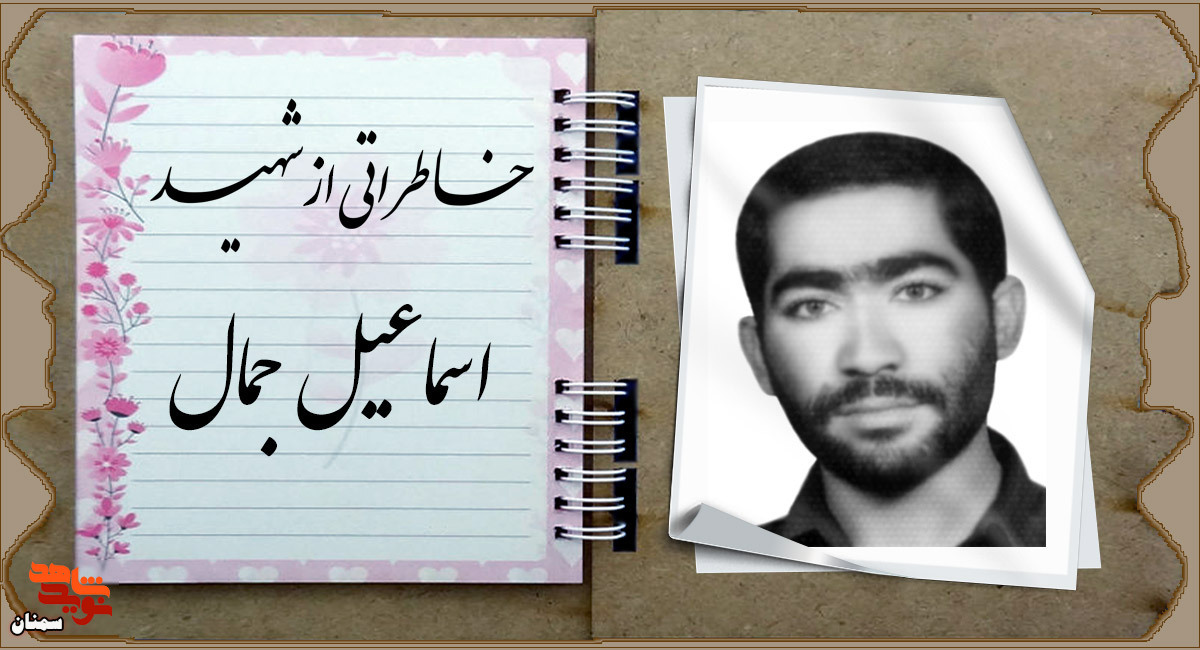 خاطراتی از شهید
اسماعیل جمال
نوید شاهد
سمنان